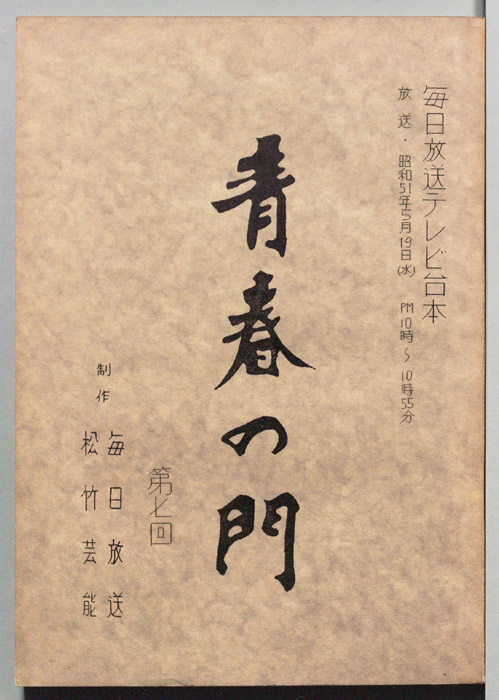 毎日放送テレビ台本
放送・昭和51年5月19日(水) PM10時〜10時55分
青春の門
第七回
制作
毎日放送
松竹芸能